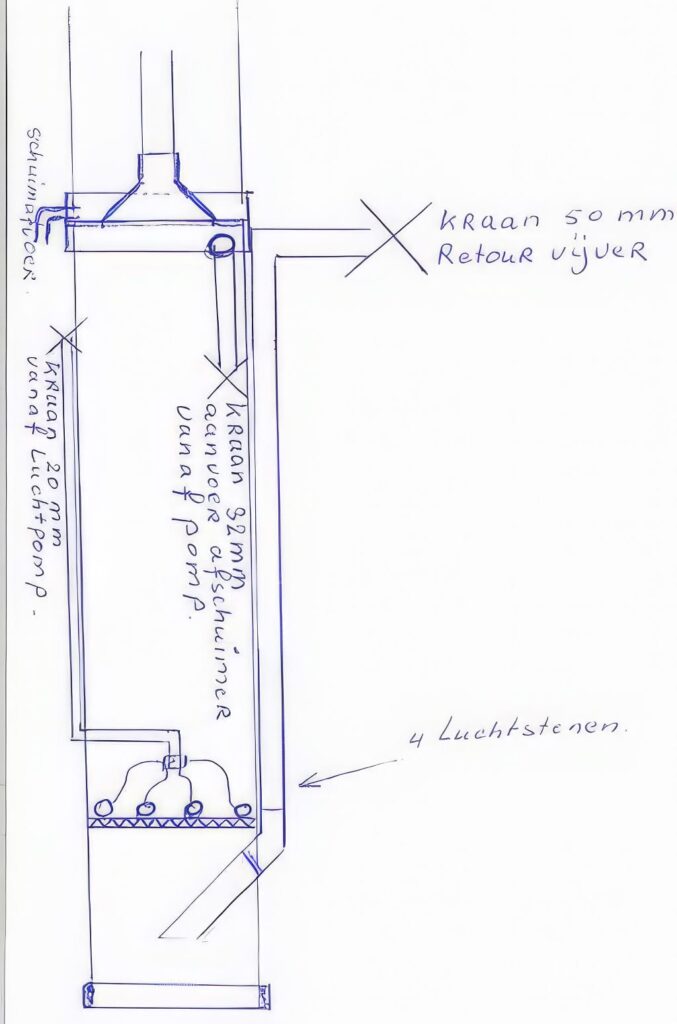 Schuimafvoer.
KRAAN 50 mm
Retour vijver
KRAAN 20 mm
vanaf Luchtpomp.
KRAAN 32mm
aanvoer afschuimer
vanaf pomp.
4 Luchtstenen.